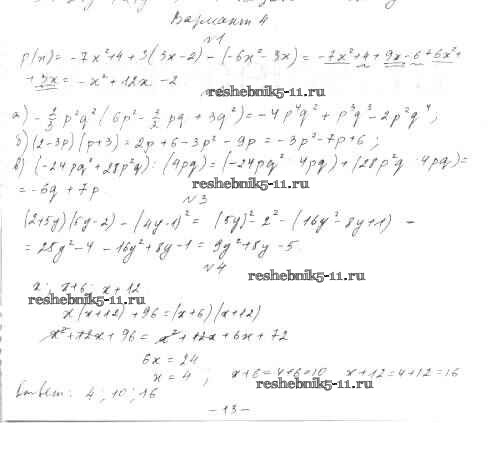 Вариант 4
№1
p(x) = -7x²+4+3(3x-2) - (-6x² - 3x) = -7x²+4+9x-6+6x²+
+3x = -x² + 12x - 2
reshebnik5-11.ru
а) - 2/3 p²q² (6p² - 3/2 pq + 3q²) = -4p⁴q² + p³q³ - 2p²q⁴;
б) (2-3p)(p+3) = 2p + 6 - 3p² - 9p = -3p² - 7p + 6;
в) (-24pq² + 28p²q) : (4pq) = (-24pq² : 4pq) + (28p²q : 4pq) =
= -6q + 7p.
reshebnik5-11.ru
№3
(2+5y)(5y-2) - (4y-1)² = (5y)² - 2² - (16y² - 8y + 1) =
= 25y² - 4 - 16y² + 8y - 1 = 9y² + 8y - 5.
№4
reshebnik5-11.ru
x; x+6; x+12
reshebnik5-11.ru
x(x+12) + 96 = (x+6)(x+12)
x² + 12x + 96 = x² + 12x + 6x + 72
6x = 24
x = 4 ; x+6 = 4+6 = 10 x+12 = 4+12 = 16
reshebnik5-11.ru
Ответ: 4; 10; 16
- 13 -